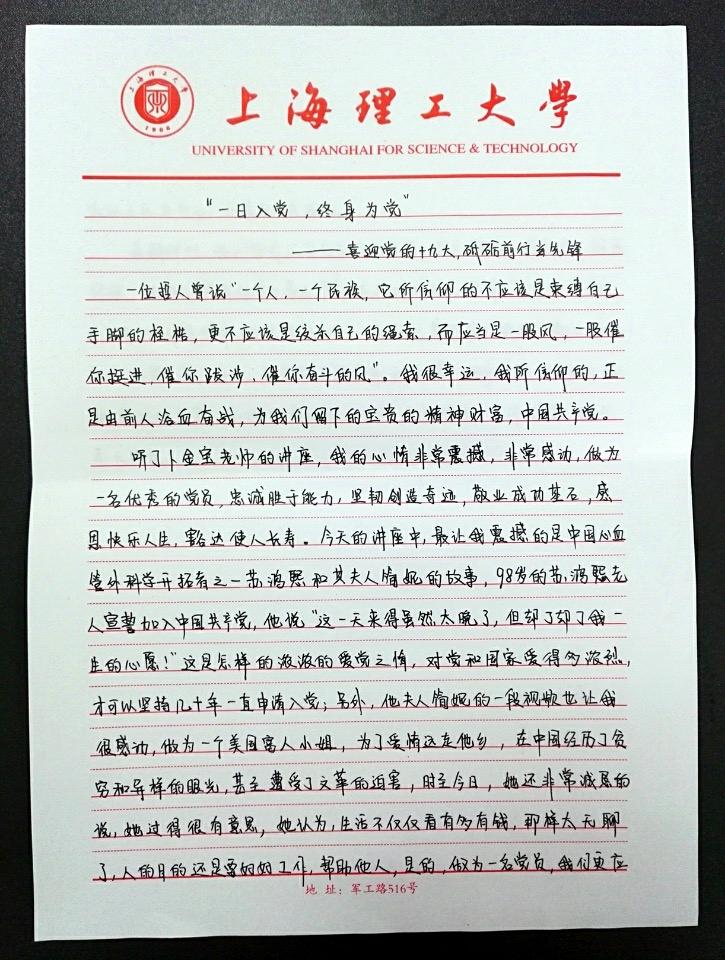 上海理工大学
1906
上海理工大學
UNIVERSITY OF SHANGHAI FOR SCIENCE & TECHNOLOGY
“一日入党，终身为党”
——喜迎党的十九大，砥砺前行当先锋
一位哲人曾说“一个人，一个民族，它所信仰的不应该是束缚自己
手脚的桎梏，更不应该是绞杀自己的绳索，而应当是一股风，一股催
你挺进，催你跋涉，催你奋斗的风”。我很幸运，我所信仰的，正
是由前人浴血奋战，为我们留下的宝贵的精神财富，中国共产党。
听了卜金宝老师的讲座，我的心情非常震撼，非常感动，做为
一名优秀的党员，忠诚胜于能力，坚韧创造奇迹，敬业成功基石，感
恩快乐人生，豁达使人长寿。今天的讲座中，最让我震撼的是中国心血
管外科学开拓者之一苏鸿熙和其夫人锦妮的故事，98岁的苏鸿熙老
人宣誓加入中国共产党，他说“这一天来得虽然太晚了，但却了却了我一
生的心愿！”这是怎样的浓浓的爱党之情，对党和国家爱得多浓烈，
才可以坚持几十年一直申请入党；另外，他夫人锦妮的一段视频也让我
很感动，做为一个美国富人小姐，为了爱情远走他乡，在中国经历了贫
穷和异样的眼光，甚至遭受了文革的迫害，时至今日，她还非常诚恳的
说，她过得很有意思，她认为，生活不仅仅看有多有钱，那样太无聊
了，人的目的还是要好好工作，帮助他人，是的，做为一名党员，我们更应
地 址：军工路516号